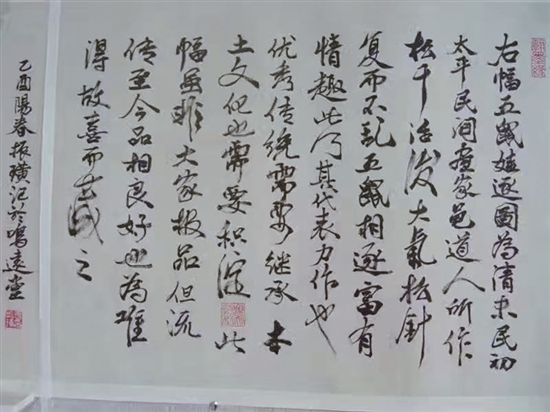 右幅五鼠嬉逐圖為清末民初
太平民间畫家邑道人所作
松干活泼大氣松針
复而不乱五鼠相逐富有
情趣此乃其代表力作也
优秀传统需要继承本
土文化也需要积淀此
幅虽非大家极品但流
传至今品相良好也為难
得故喜而藏之
乙酉陽春振璜记於鸣遠堂